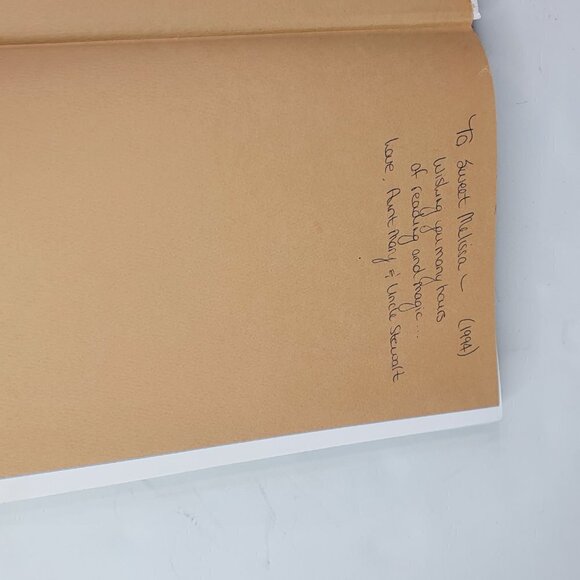 To Sweet Melissa ~ (1994)
Wishing you many hours
of reading and magic...
Love, Aunt Mary & Uncle Stewart